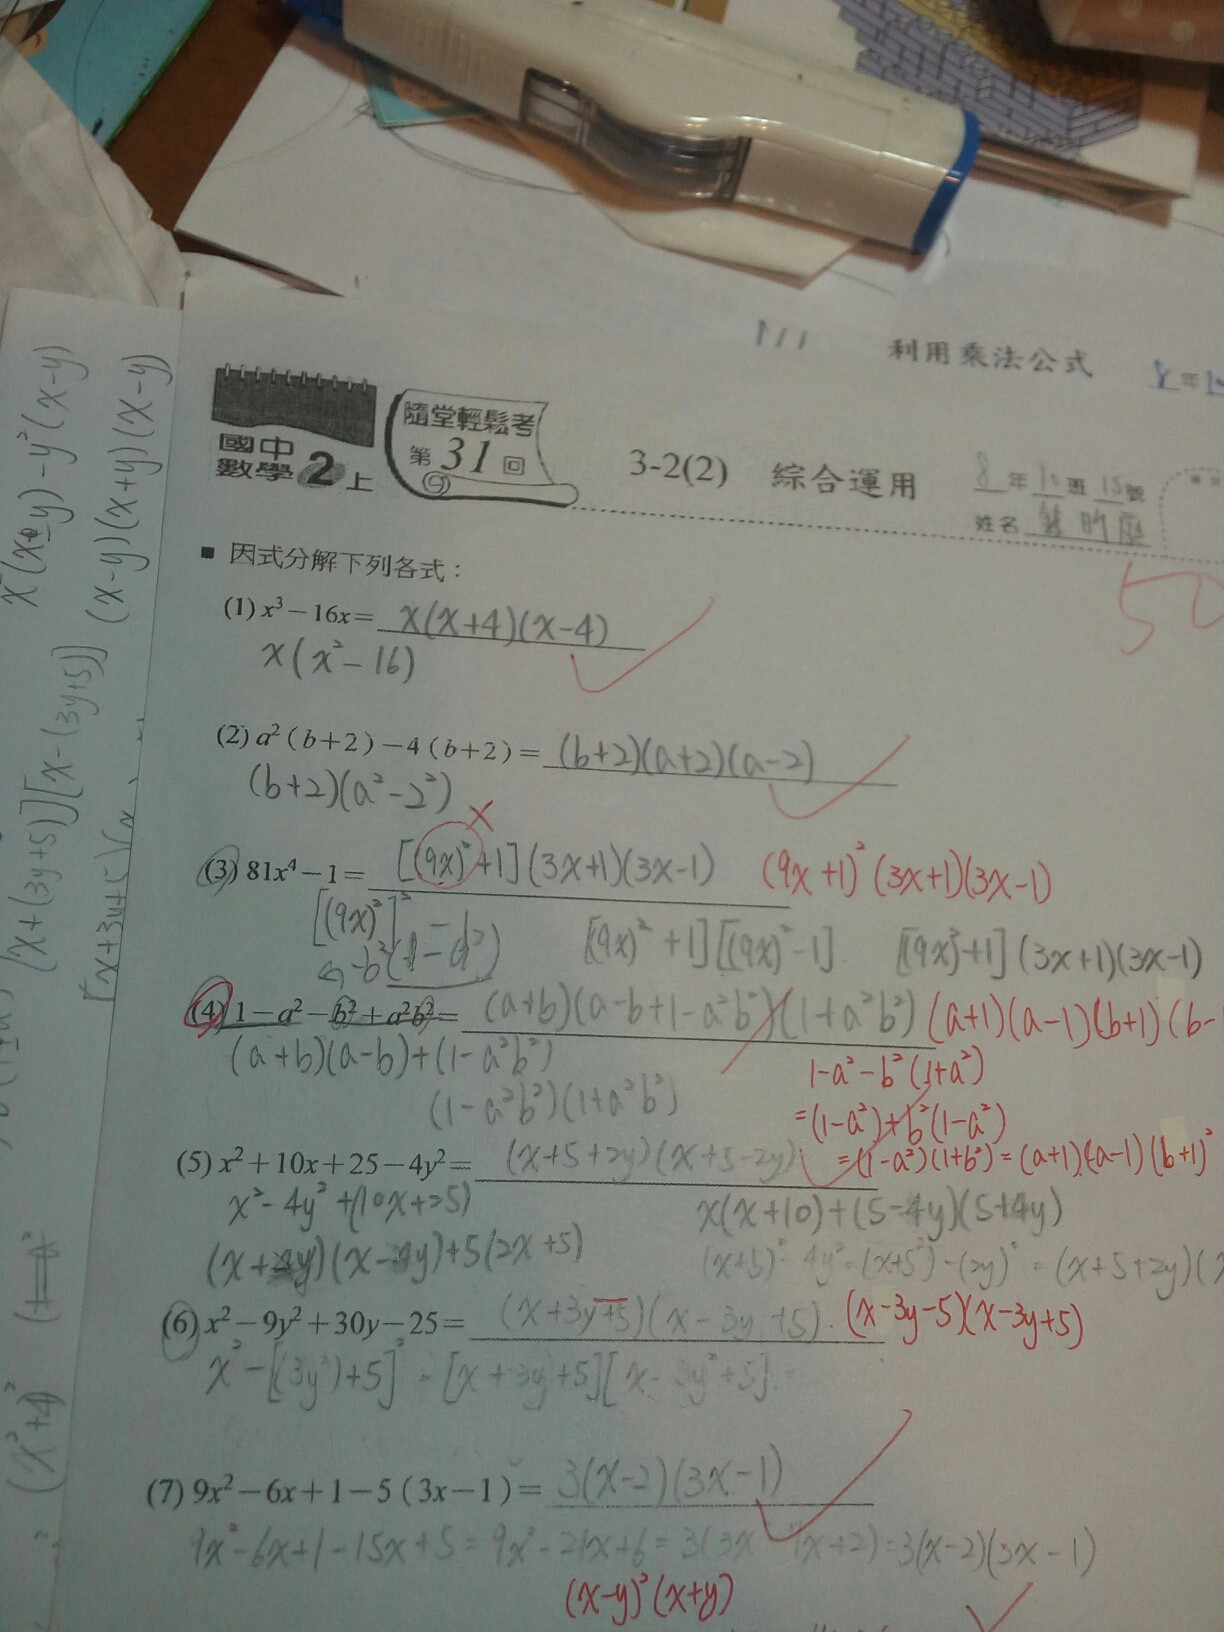 利用乘法公式
8年
國中數學2上
隨堂輕鬆考
第31回
3-2(2) 綜合運用
8年10班15號
姓名
50
■ 因式分解下列各式：
(1) x³－16x＝ x(x+4)(x-4)
x(x²-16)
(2) a²(b+2)－4(b+2)＝ (b+2)(a+2)(a-2)
(b+2)(a²-2²)
(3) 81x⁴－1＝ [(9x)²+1](3x+1)(3x-1) (9x+1)²(3x+1)(3x-1)
[(9x)²]²
[(9x)²+1][(9x)²-1] [(9x)²+1](3x+1)(3x-1)
(4) 1－a²－b²＋a²b²＝ (a+b)(a-b+1-a²b²)(1+a²b²) (a+1)(a-1)(b+1)(b-
(a+b)(a-b)+(1-a²b²) 1-a²-b²(1+a²)
(1-a²b²)(1+a²b²) =(1-a²)+b²(1-a²)
=(1-a²)(1+b²)=(a+1)(a-1)(b+1)²
(5) x²＋10x＋25－4y²＝ (x+5+2y)(x+5-2y)
x²-4y²+(10x+25) x(x+10)+(5-4y)(5+4y)
(x+4y)(x-4y)+5(2x+5) (x+5)²-4y²=(x+5)²-(2y)²=(x+5+2y)(
(6) x²－9y²＋30y－25＝ (x+3y+5)(x-3y+5) (x-3y-5)(x-3y+5)
x²-[(3y²)+5]²=[x+3y+5][x-3y²+5]=
(7) 9x²－6x＋1－5(3x－1)＝ 3(x-2)(3x-1)
9x²-6x+1-15x+5=9x²-21x+6=3(3x²-7x+2)=3(x-2)(3x-1)
(x-y)²(x+y)
(x-y)(x+y)(x-y)
[x+(3y+5)][x-(3y+5)]
(x²+4)²